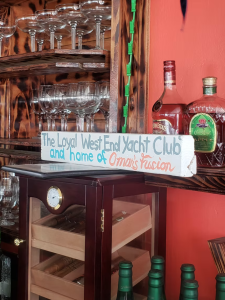 The Loyal West End Yacht Club
and home of Omar's Fusion